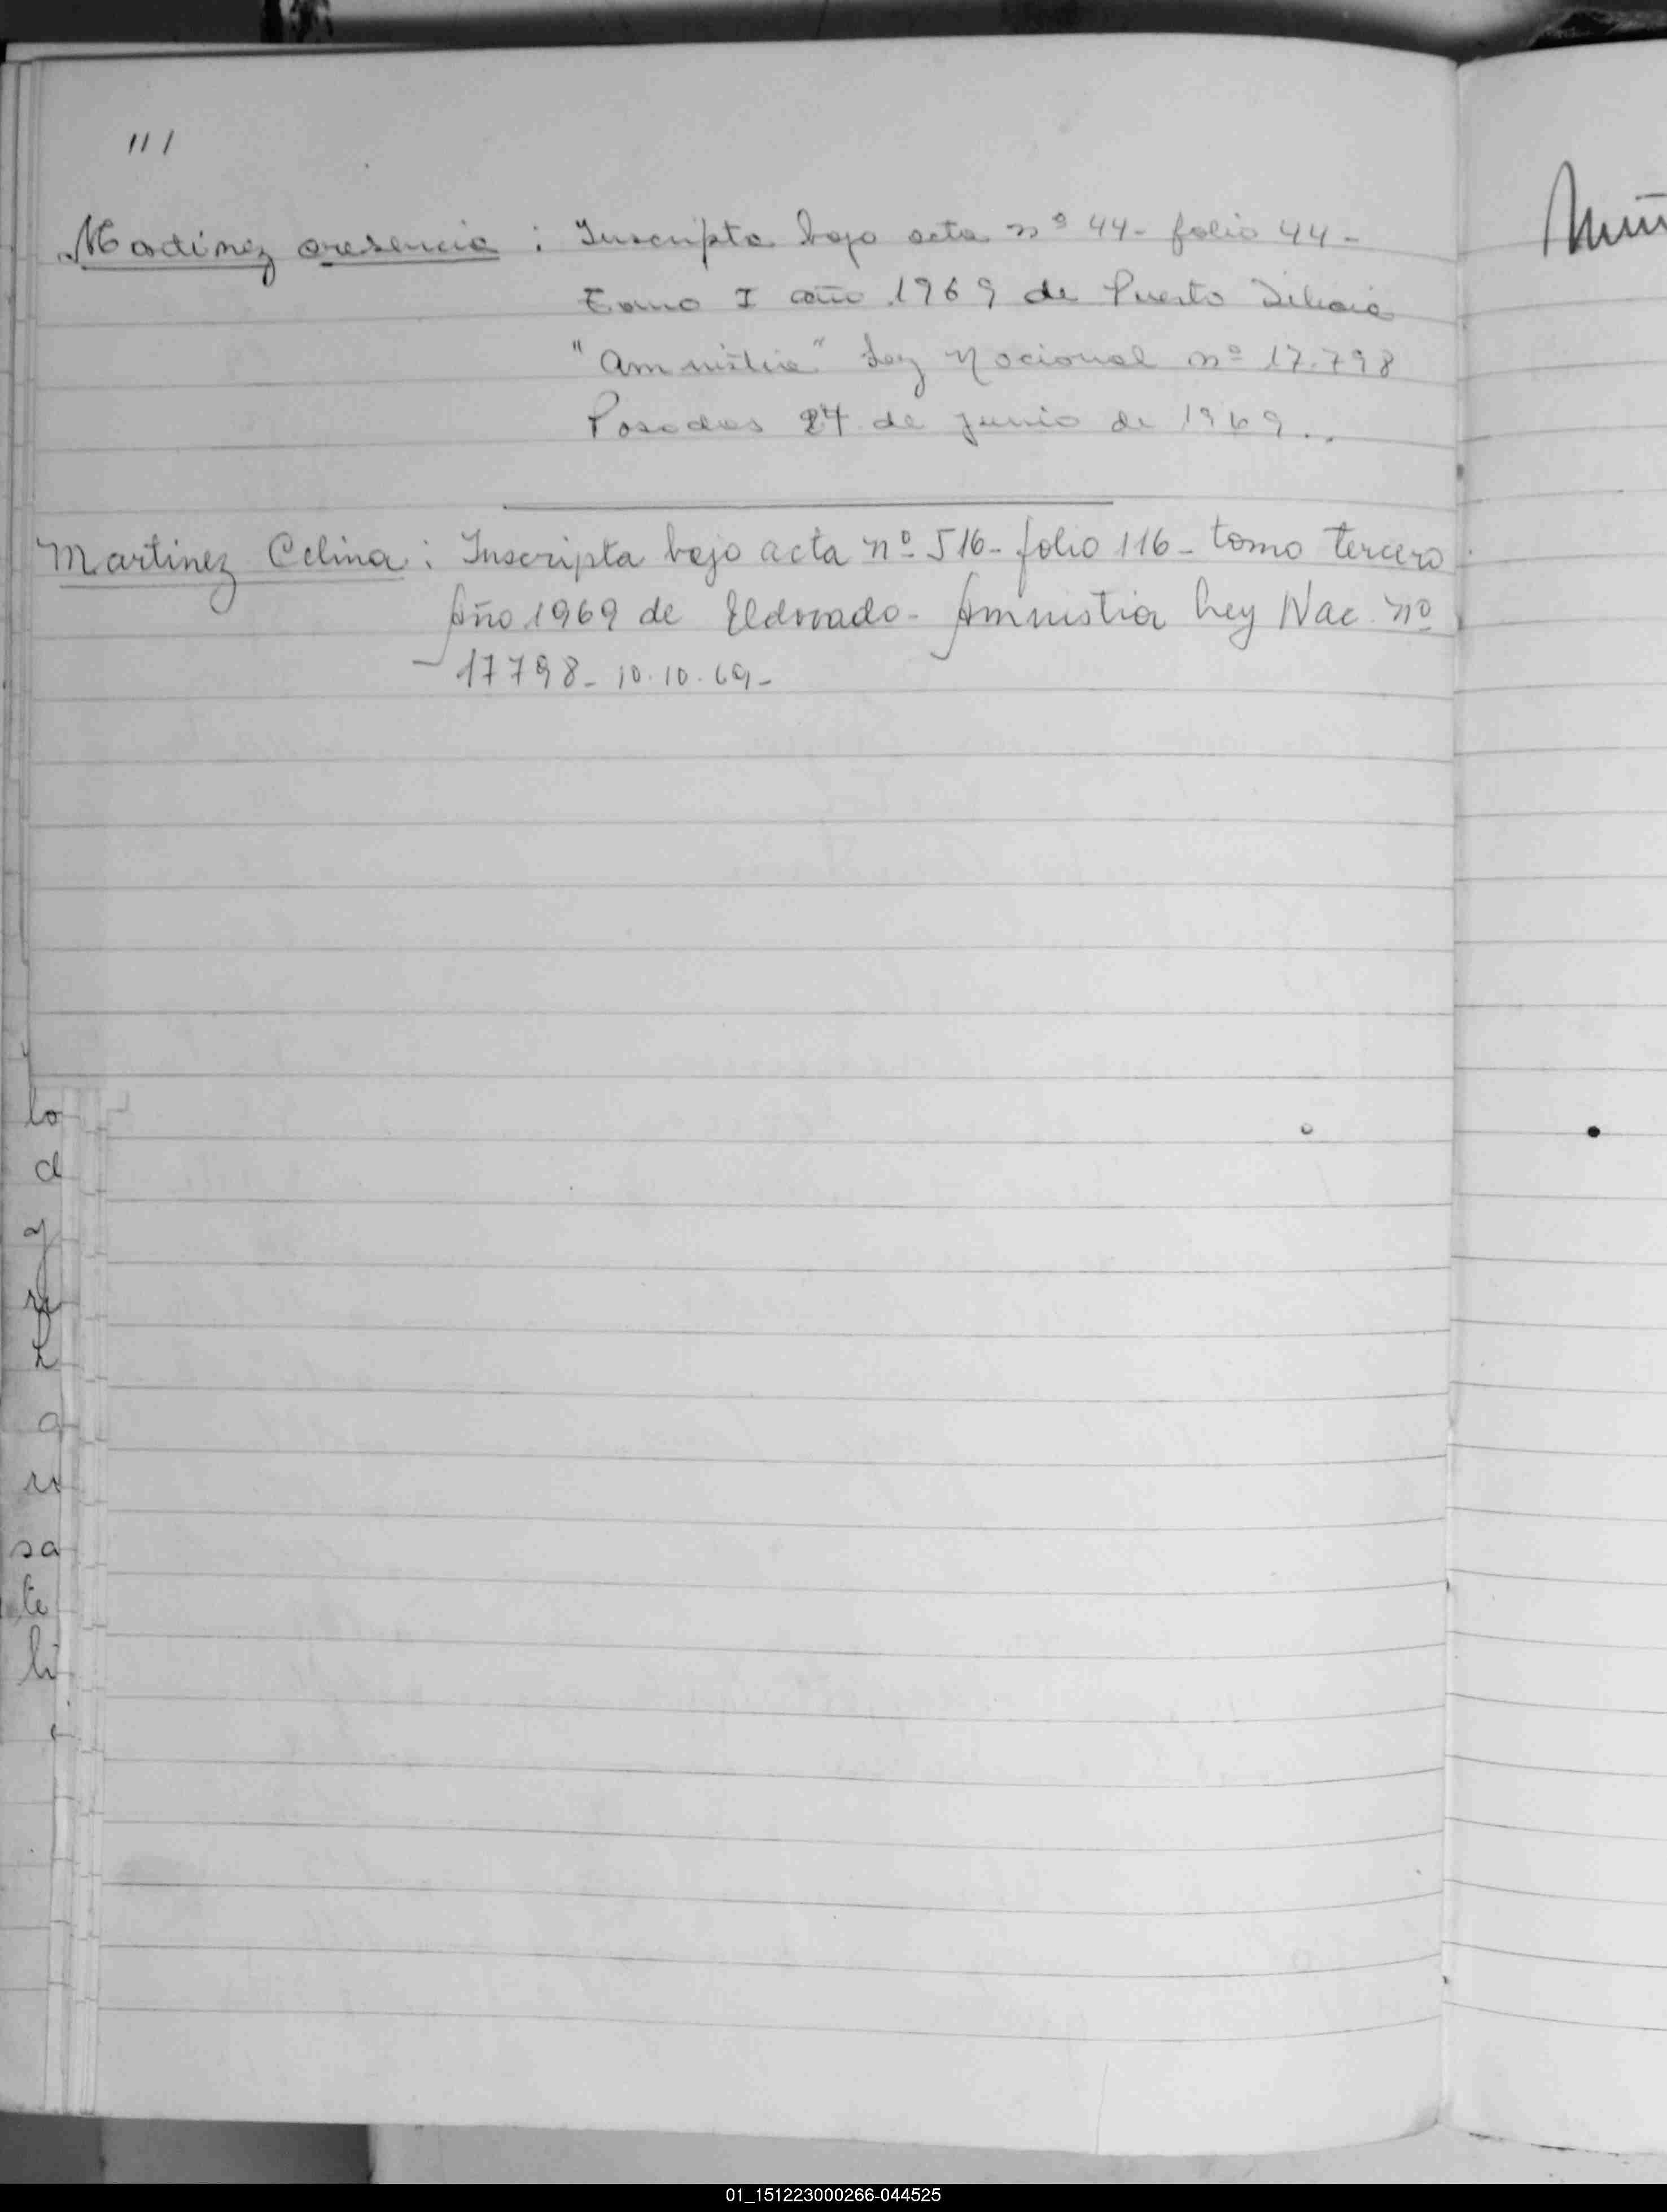 111
Martinez cresencia : Inscripta bajo acta nº 44- folio 44-
Tomo I año 1969 de Puerto
"Amnistia" Ley Nacional nº 17.798
Posadas 24 de junio de 1969..
Martinez Celina : Inscripta bajo acta nº 516- folio 116- tomo tercero
Año 1969 de Eldorado- Amnistia Ley Nac. nº
17798- 10.10.69-
Muñ
lo
d
y
a
sa
te
li
01_151223000266-044525